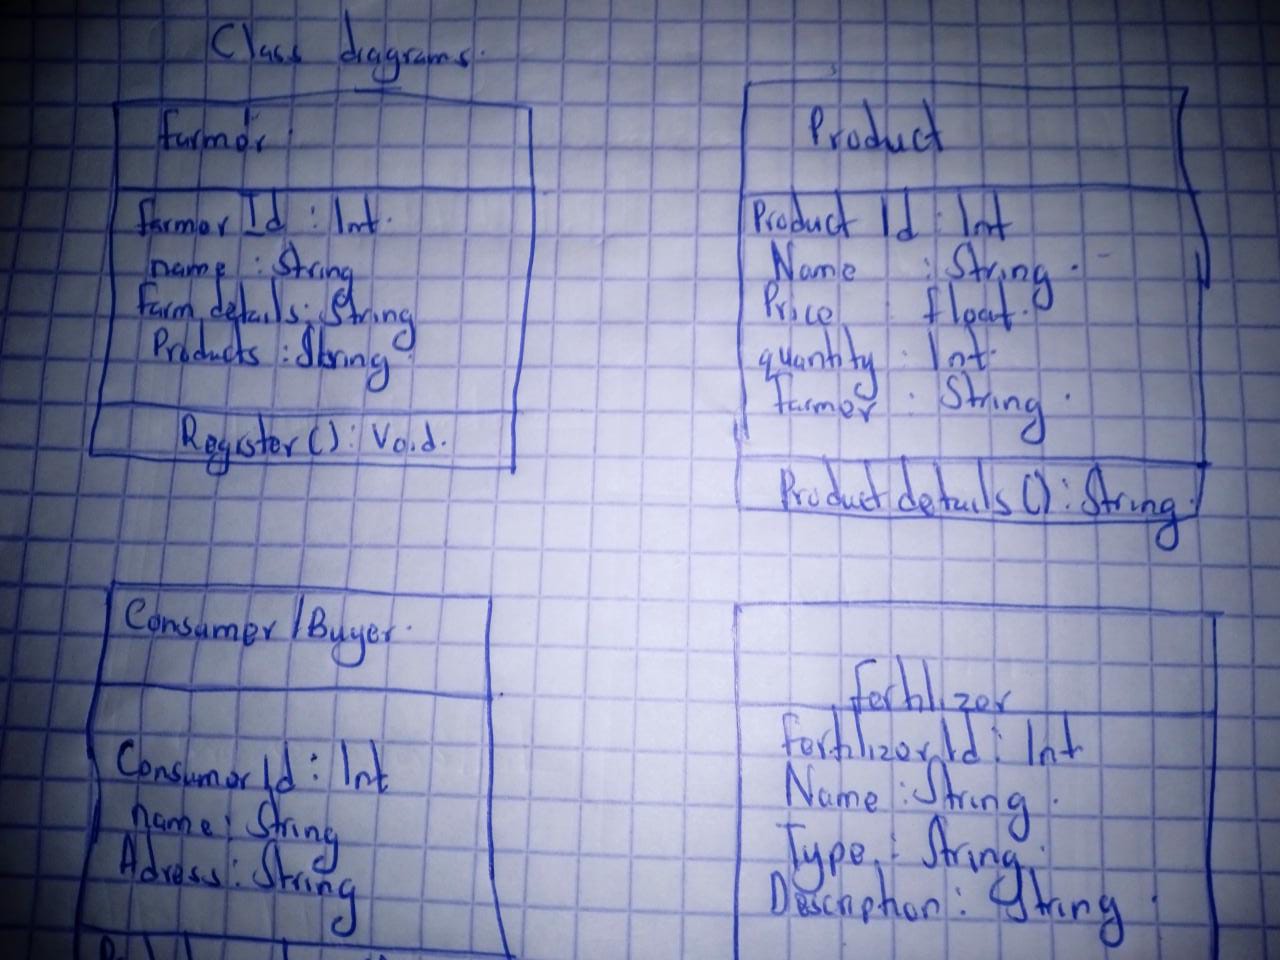 Class diagrams.
Farmer
Farmer Id : Int.
name : String
Farm details : String
Products : String
Register () : Void.
Product
Product Id : Int
Name : String.
Price : float.
quantity : Int.
Farmer : String.
Product details () : String.
Consumer / Buyer.
Consumer Id : Int
name : String
Adress : String
Fertilizer
Fertilizer Id : Int
Name : String.
Type : String.
Description : String.